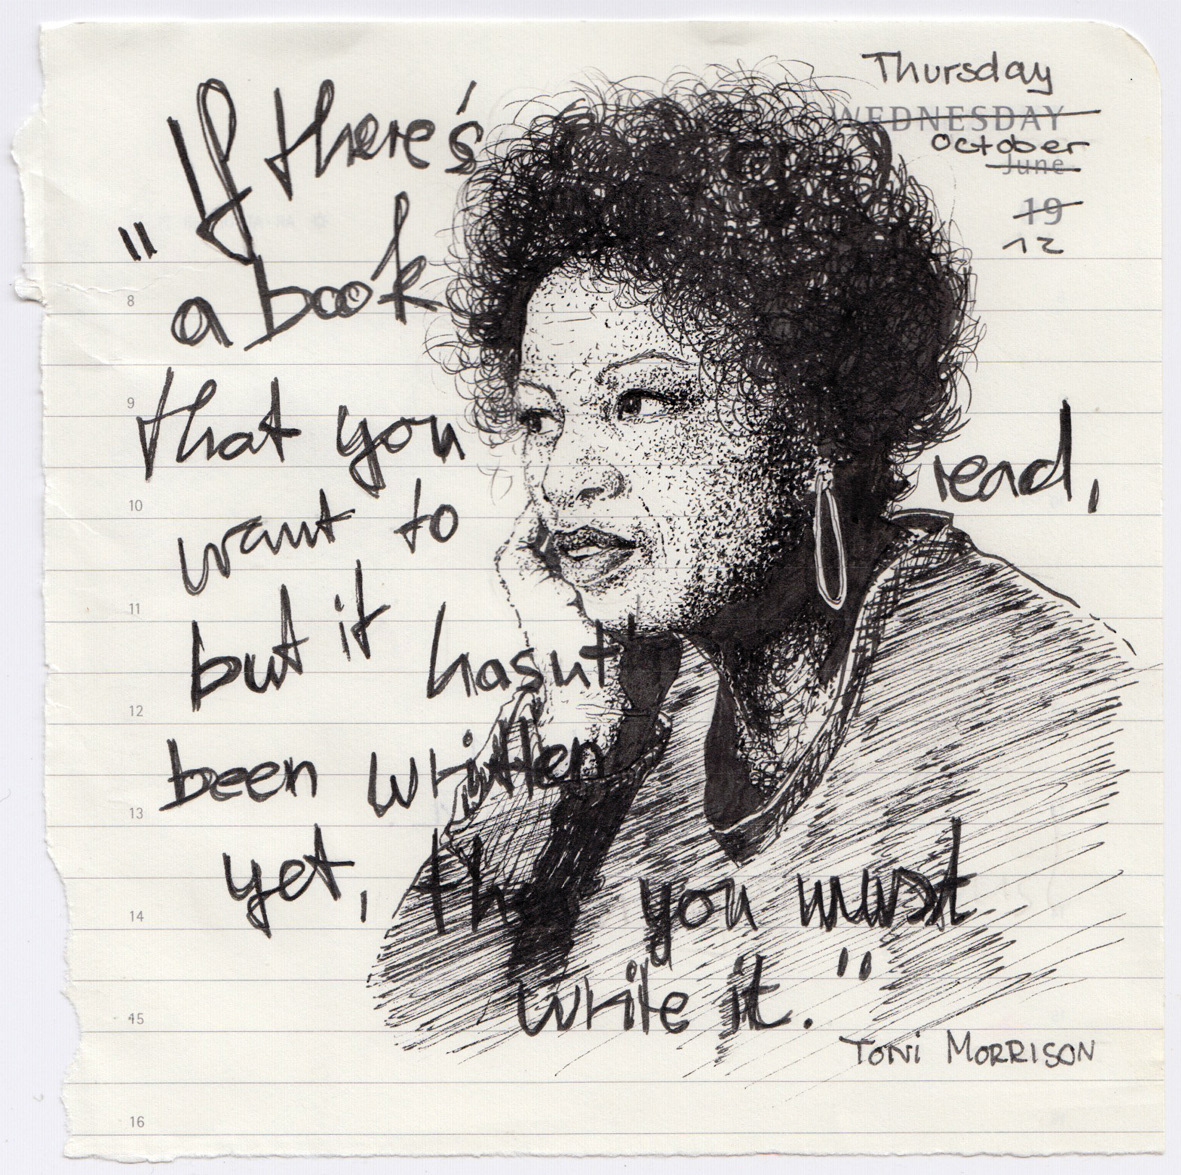 Thursday
WEDNESDAY
October
June
19
12
"If there's
a book
8
that you
9
want to read,
10
but it hasn't
11
been written
12
13
yet, you must
14
write it."
15
TONI MORRISON
16